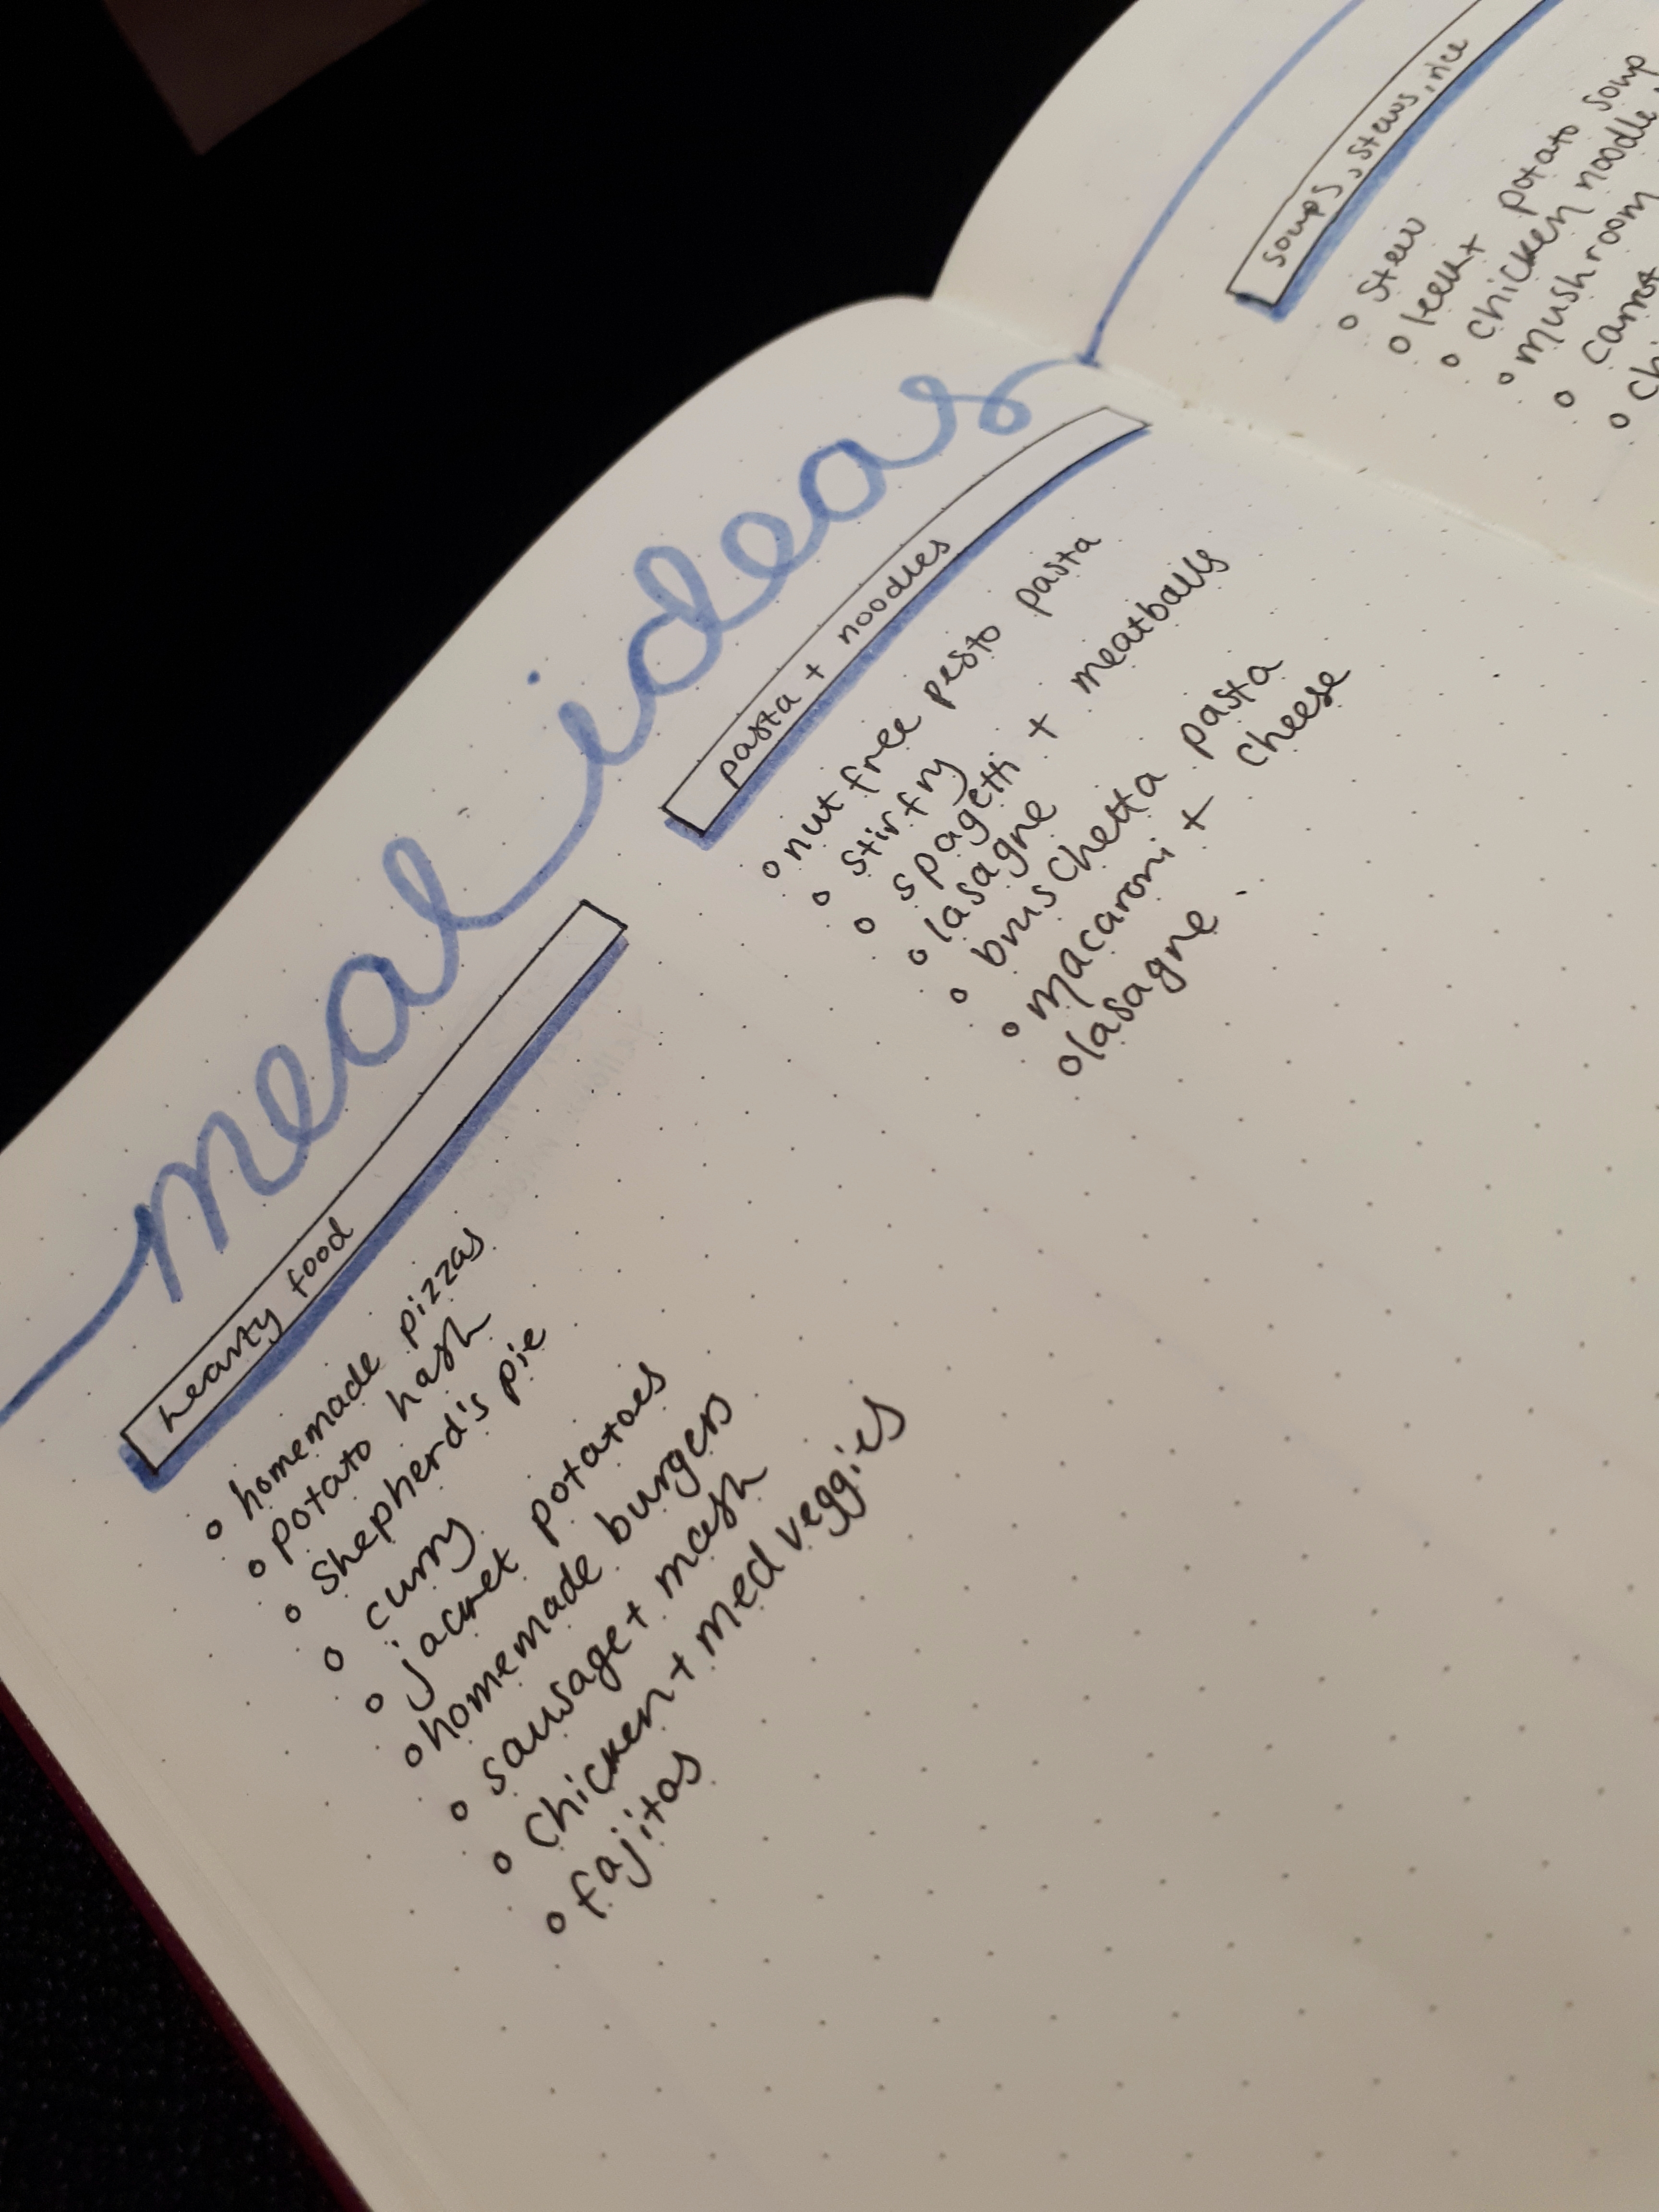 meal ideas
hearty food
o homemade pizzas
o potato hash
o shepherd's pie
o curry
o jacket potatoes
o homemade burgers
o sausage + mash
o chicken + med veggies
o fajitas
pasta + noodles
o nut free pesto pasta
o stirfry
o spagetti + meatballs
o lasagne
o bruschetta pasta
o macaroni + cheese
o lasagne
soups, stews, rice
o stew
o leek + potato soup
o chicken noodle
o mushroom
o carrot
o